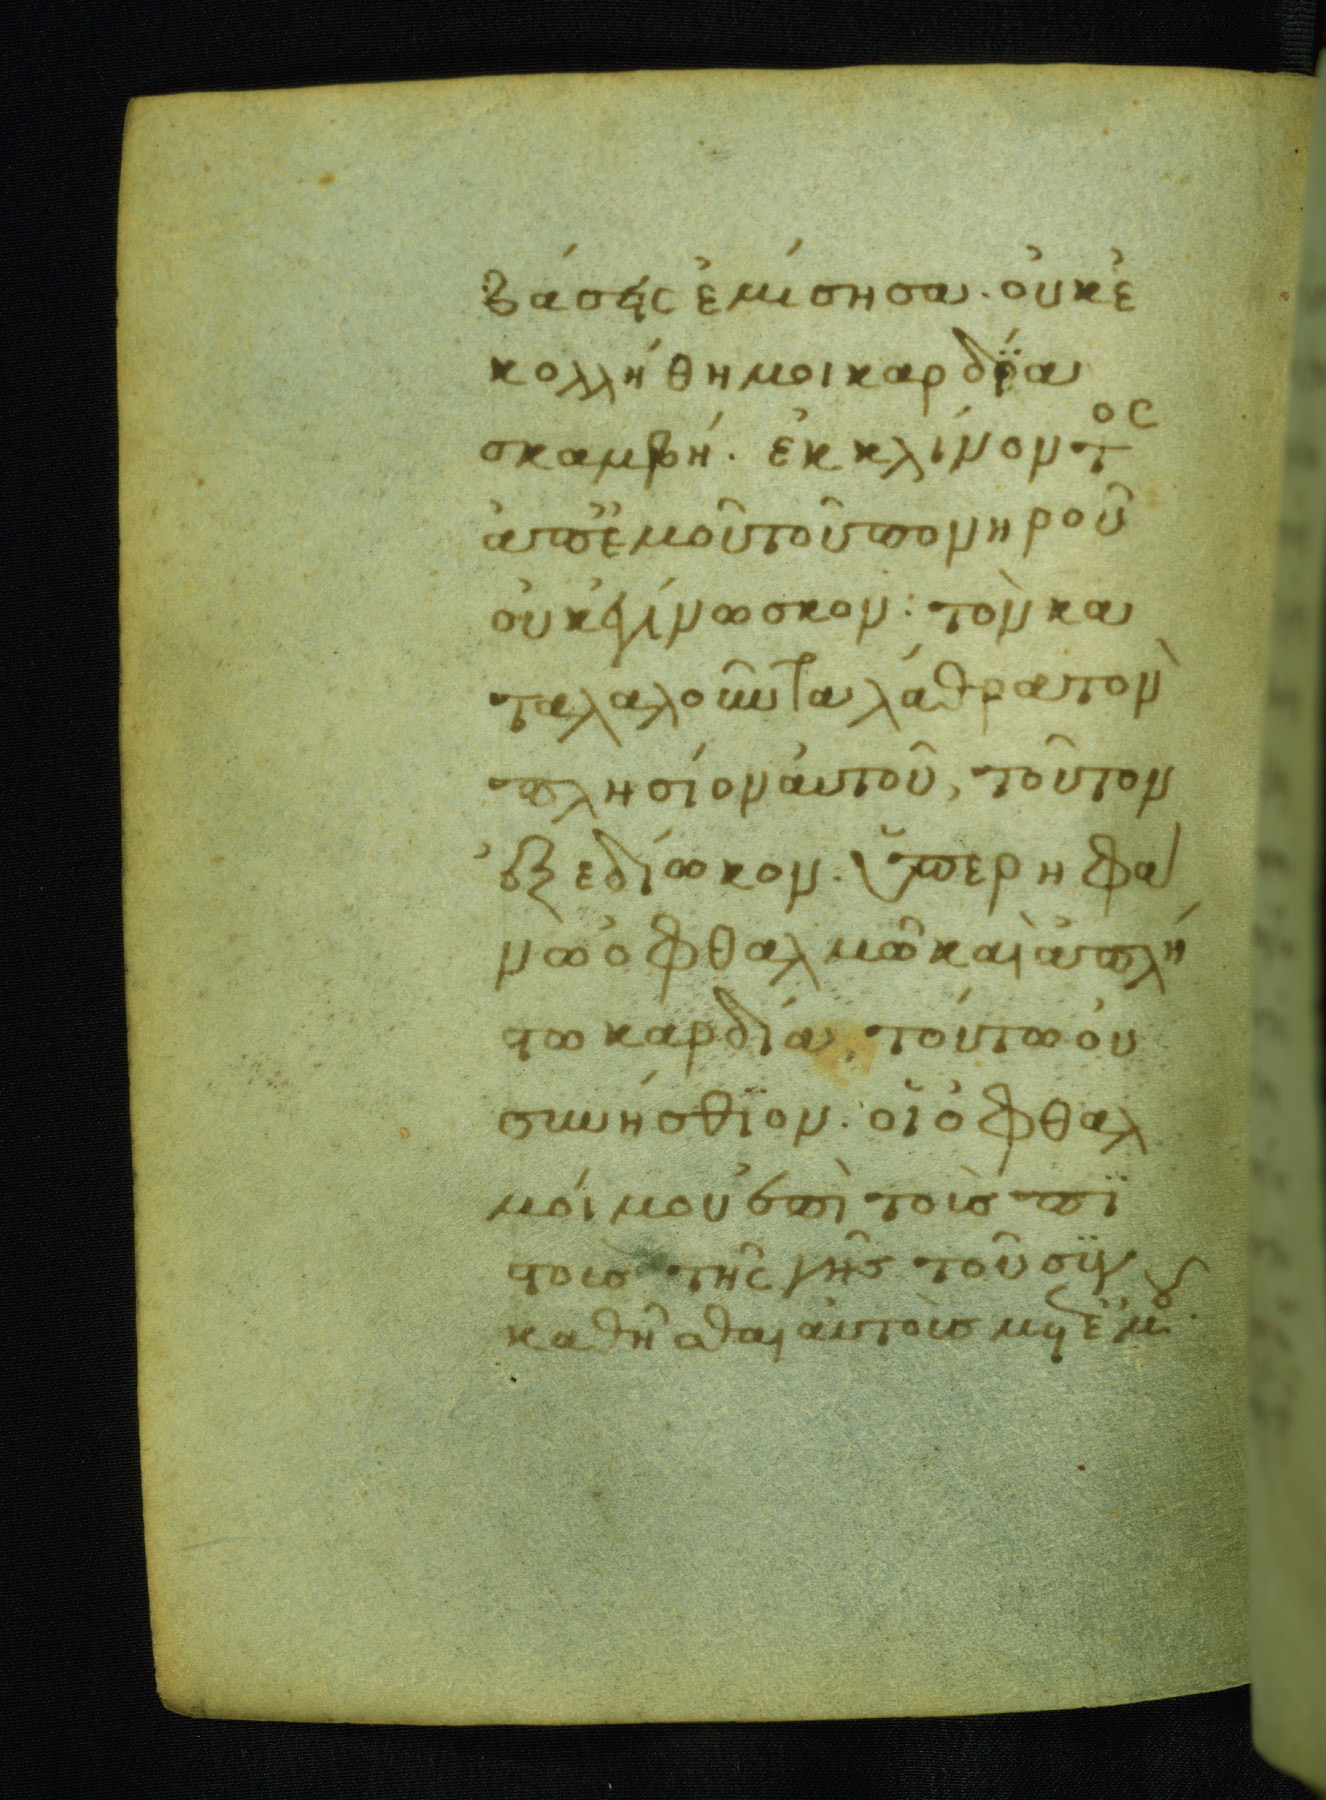 βάσεις ἐμίσησα. οὐκ ἐ
κολλήθη μοι καρδΐα
σκαμβή. ἐκκλίνοντος
ἀπ' ἐμοῦ τοῦ πονηροῦ
οὐκ ἐγίνωσκον: τὸν κα
ταλαλοῦντα λάθρα τὸν
πλησίον ἀυτοῦ, τοῦτον
ἐξεδίωκον. ὑπερηφά
νω ὀφθαλμῶ καὶ ἀπλή
στω καρδία, τούτω οὐ
συνήσθϊον. οἱ ὀφθαλ
μόι μου ἐπὶ τοὺσ πϊ
στοὺσ τῆς γῆς τοῦ σϋγ
καθῆσθαι ἀυτοὺσ μετ ἐμοῦ.